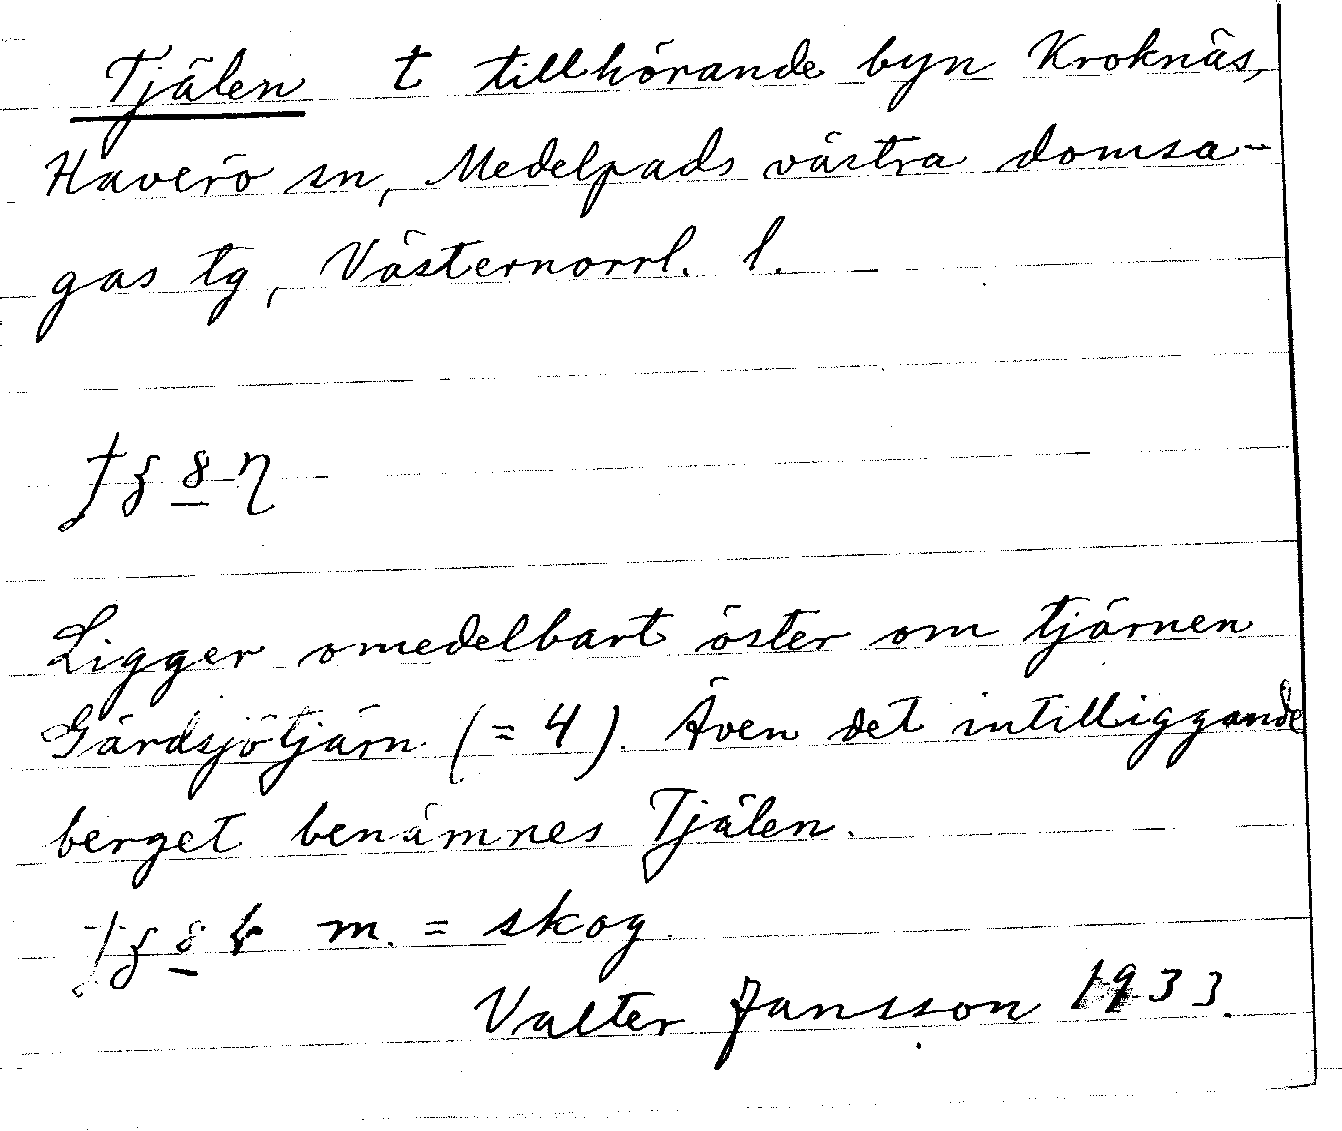 Tjälen t tillhörande byn Kroknäs,
Haverö sn, Medelpads västra domsa-
gas tg, Västernorrl. l.
Ligger omedelbart öster om tjärnen
Gärdsjötjärn (= 4). Även det intilliggande
berget benämnes Tjälen.
m. = skog
Valter Jansson 1933.